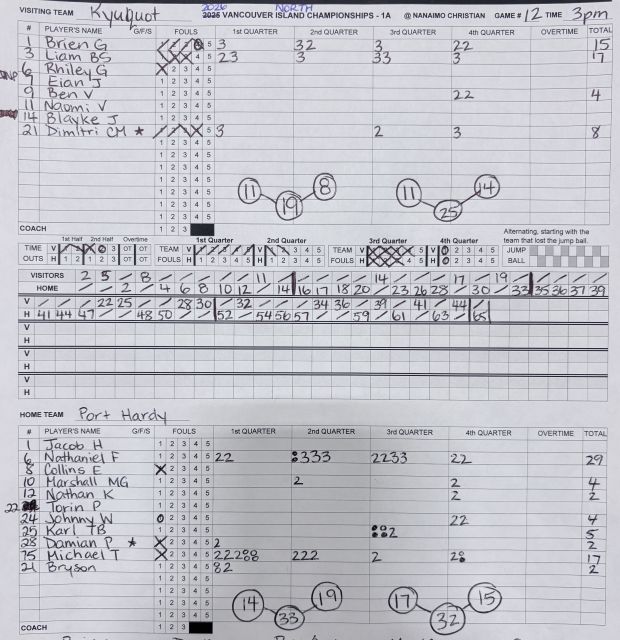 VISITING TEAM Kyuquot 2026 2025 NORTH VANCOUVER ISLAND CHAMPIONSHIPS - 1A @ NANAIMO CHRISTIAN GAME # 12 TIME 3pm
# PLAYER'S NAME G/F/S FOULS 1ST QUARTER 2ND QUARTER 3RD QUARTER 4TH QUARTER OVERTIME TOTAL
1 Brien G 5 3 32 3 22 15
3 Liam BS 4 5 23 3 33 3 17
DNP 6 Rhiley G 2 3 4 5
7 Eian J 1 2 3 4 5
9 Ben V 1 2 3 4 5 22 4
11 Naomi V 1 2 3 4 5
14 Blayke J 1 2 3 4 5
21 Dimitri CM ★ 5 3 2 3 8
1 2 3 4 5
1 2 3 4 5
1 2 3 4 5
1 2 3 4 5
1 2 3 4 5
1 2 3 4 5
11 19 8 11 25 14
COACH 1 2 3
Alternating, starting with the team that lost the jump ball.
1st Half 2nd Half Overtime 1st Quarter 2nd Quarter 3rd Quarter 4th Quarter
TIME V TEAM V TEAM V JUMP
OUTS H FOULS H FOULS H BALL
VISITORS 2 5 8 11 14 17 19
HOME 2 4 6 8 10 12 14 16 17 18 20 23 26 28 30 33 35 36 37 39
V 22 25 28 30 32 34 36 39 41 44
H 41 44 47 48 50 52 54 56 57 59 61 63 65
V
H
V
H
V
H
HOME TEAM Port Hardy
# PLAYER'S NAME G/F/S FOULS 1ST QUARTER 2ND QUARTER 3RD QUARTER 4TH QUARTER OVERTIME TOTAL
1 Jacob H 1 2 3 4 5
6 Nathaniel F 1 2 3 4 5 22 333 2233 22 29
8 Collins E 2 3 4 5
10 Marshall MG 1 2 3 4 5 2 2 4
12 Nathan K 1 2 3 4 5 2 2
22 Torin P 1 2 3 4 5
24 Johnny W 2 3 4 5 22 4
25 Karl TB 1 2 3 4 5 2 5
28 Damian P ★ 2 3 4 5 2 2
75 Michael T 2 3 4 5 222 222 2 2 17
21 Bryson 1 2 3 4 5 2 2
1 2 3 4 5
1 2 3 4 5
1 2 3 4 5
14 33 19 17 32 15
COACH 1 2 3